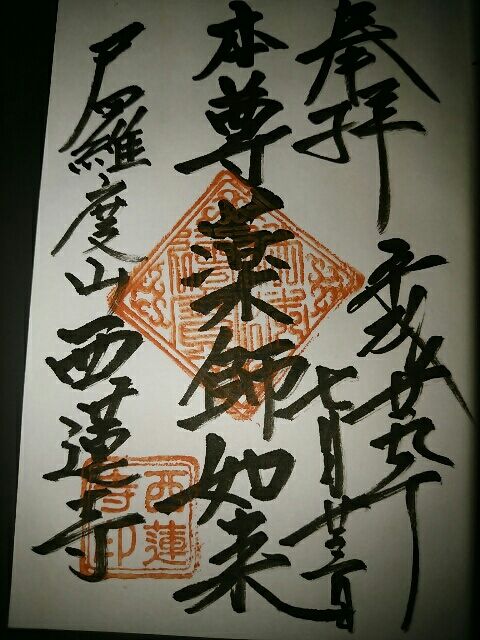 奉拝
平成廿九年
七月廿三日
本尊薬師如来
尸羅度山西蓮寺
西蓮
寺印